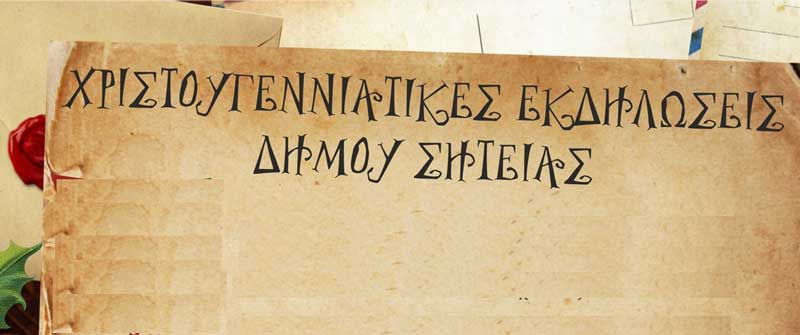 ΧΡΙΣΤΟΥΓΕΝΝΙΑΤΙΚΕΣ ΕΚΔΗΛΩΣΕΙΣ
ΔΗΜΟΥ ΣΗΤΕΙΑΣ